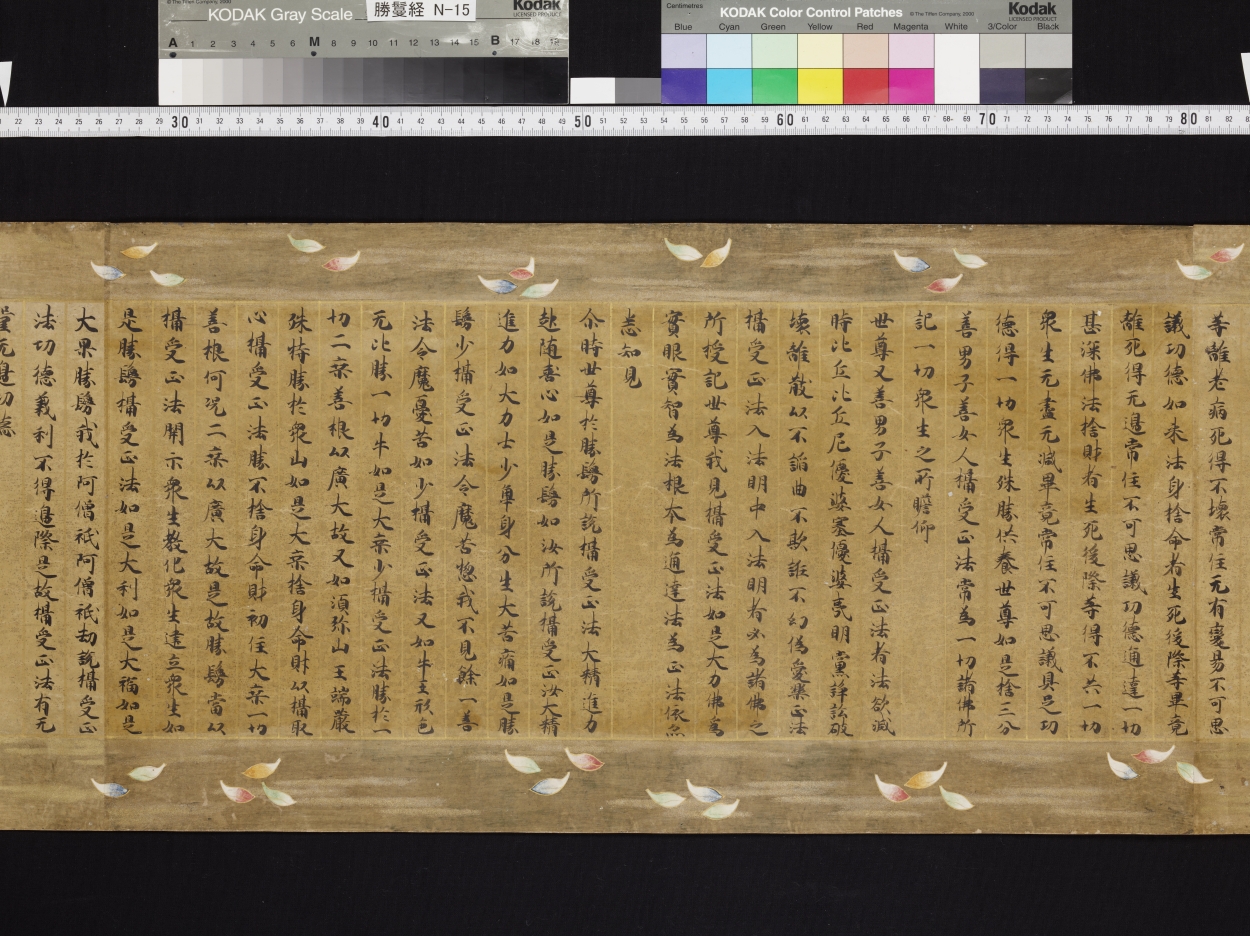 勝鬘経 N-15
KODAK Gray Scale
Kodak
LICENSED PRODUCT
© The Tiffen Company, 2000
A 1 2 3 4 5 6 M 8 9 10 11 12 13 14 15 B 17 18 19
Centimetres
KODAK Color Control Patches
© The Tiffen Company, 2000
Kodak
LICENSED PRODUCT
Blue Cyan Green Yellow Red Magenta White 3/Color Black
22 23 24 25 26 27 28 29 30 31 32 33 34 35 36 37 38 39 40 41 42 43 44 45 46 47 48 49 50 51 52 53 54 55 56 57 58 59 60 61 62 63 64 65 66 67 68 69 70 71 72 73 74 75 76 77 78 79 80 81 82
等離老病死得不壞常住无有變易不可思
議功德如来法身捨命者生死後際等畢竟
離死得无邊常住不可思議功德通達一切
甚深佛法捨財者生死後際等得不共一切
衆生无盡无減畢竟常住不可思議具足功
德得一切衆生殊勝供養世尊如是捨三分
善男子善女人攝受正法常為一切諸佛所
記一切衆生之所瞻仰
世尊又善男子善女人攝受正法者法欲滅
時比丘比丘尼優婆塞優婆夷朋黨諍訟破
壞離散以不諂曲不欺誑不幻偽愛樂正法
攝受正法入法朋中入法朋者必為諸佛之
所授記世尊我見攝受正法如是大力佛為
實眼實智為法根本為通達法為正法依亦
悉知見
尒時世尊於勝鬘所說攝受正法大精進力
起随喜心如是勝鬘如汝所說攝受正法大精
進力如大力士少觸身分生大苦痛如是勝
鬘少攝受正法令魔苦惱我不見餘一善
法令魔憂苦如少攝受正法又如牛王形色
无比勝一切牛如是大乘少攝受正法勝於一
切二乘善根以廣大故又如須弥山王端嚴
殊特勝於衆山如是大乘捨身命財以攝取
心攝受正法勝不捨身命財初住大乘一切
善根何況二乘以廣大故是故勝鬘當以
攝受正法開示衆生教化衆生建立衆生如
是勝鬘攝受正法如是大利如是大福如是
大果勝鬘我於阿僧祇阿僧祇劫說攝受正
法功德義利不得邊際是故攝受正法有无
量无邊功德